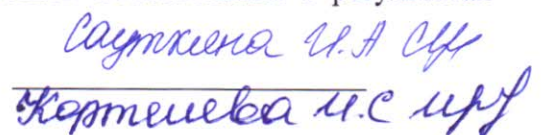 Сауткина И.А
Кортелева И.С